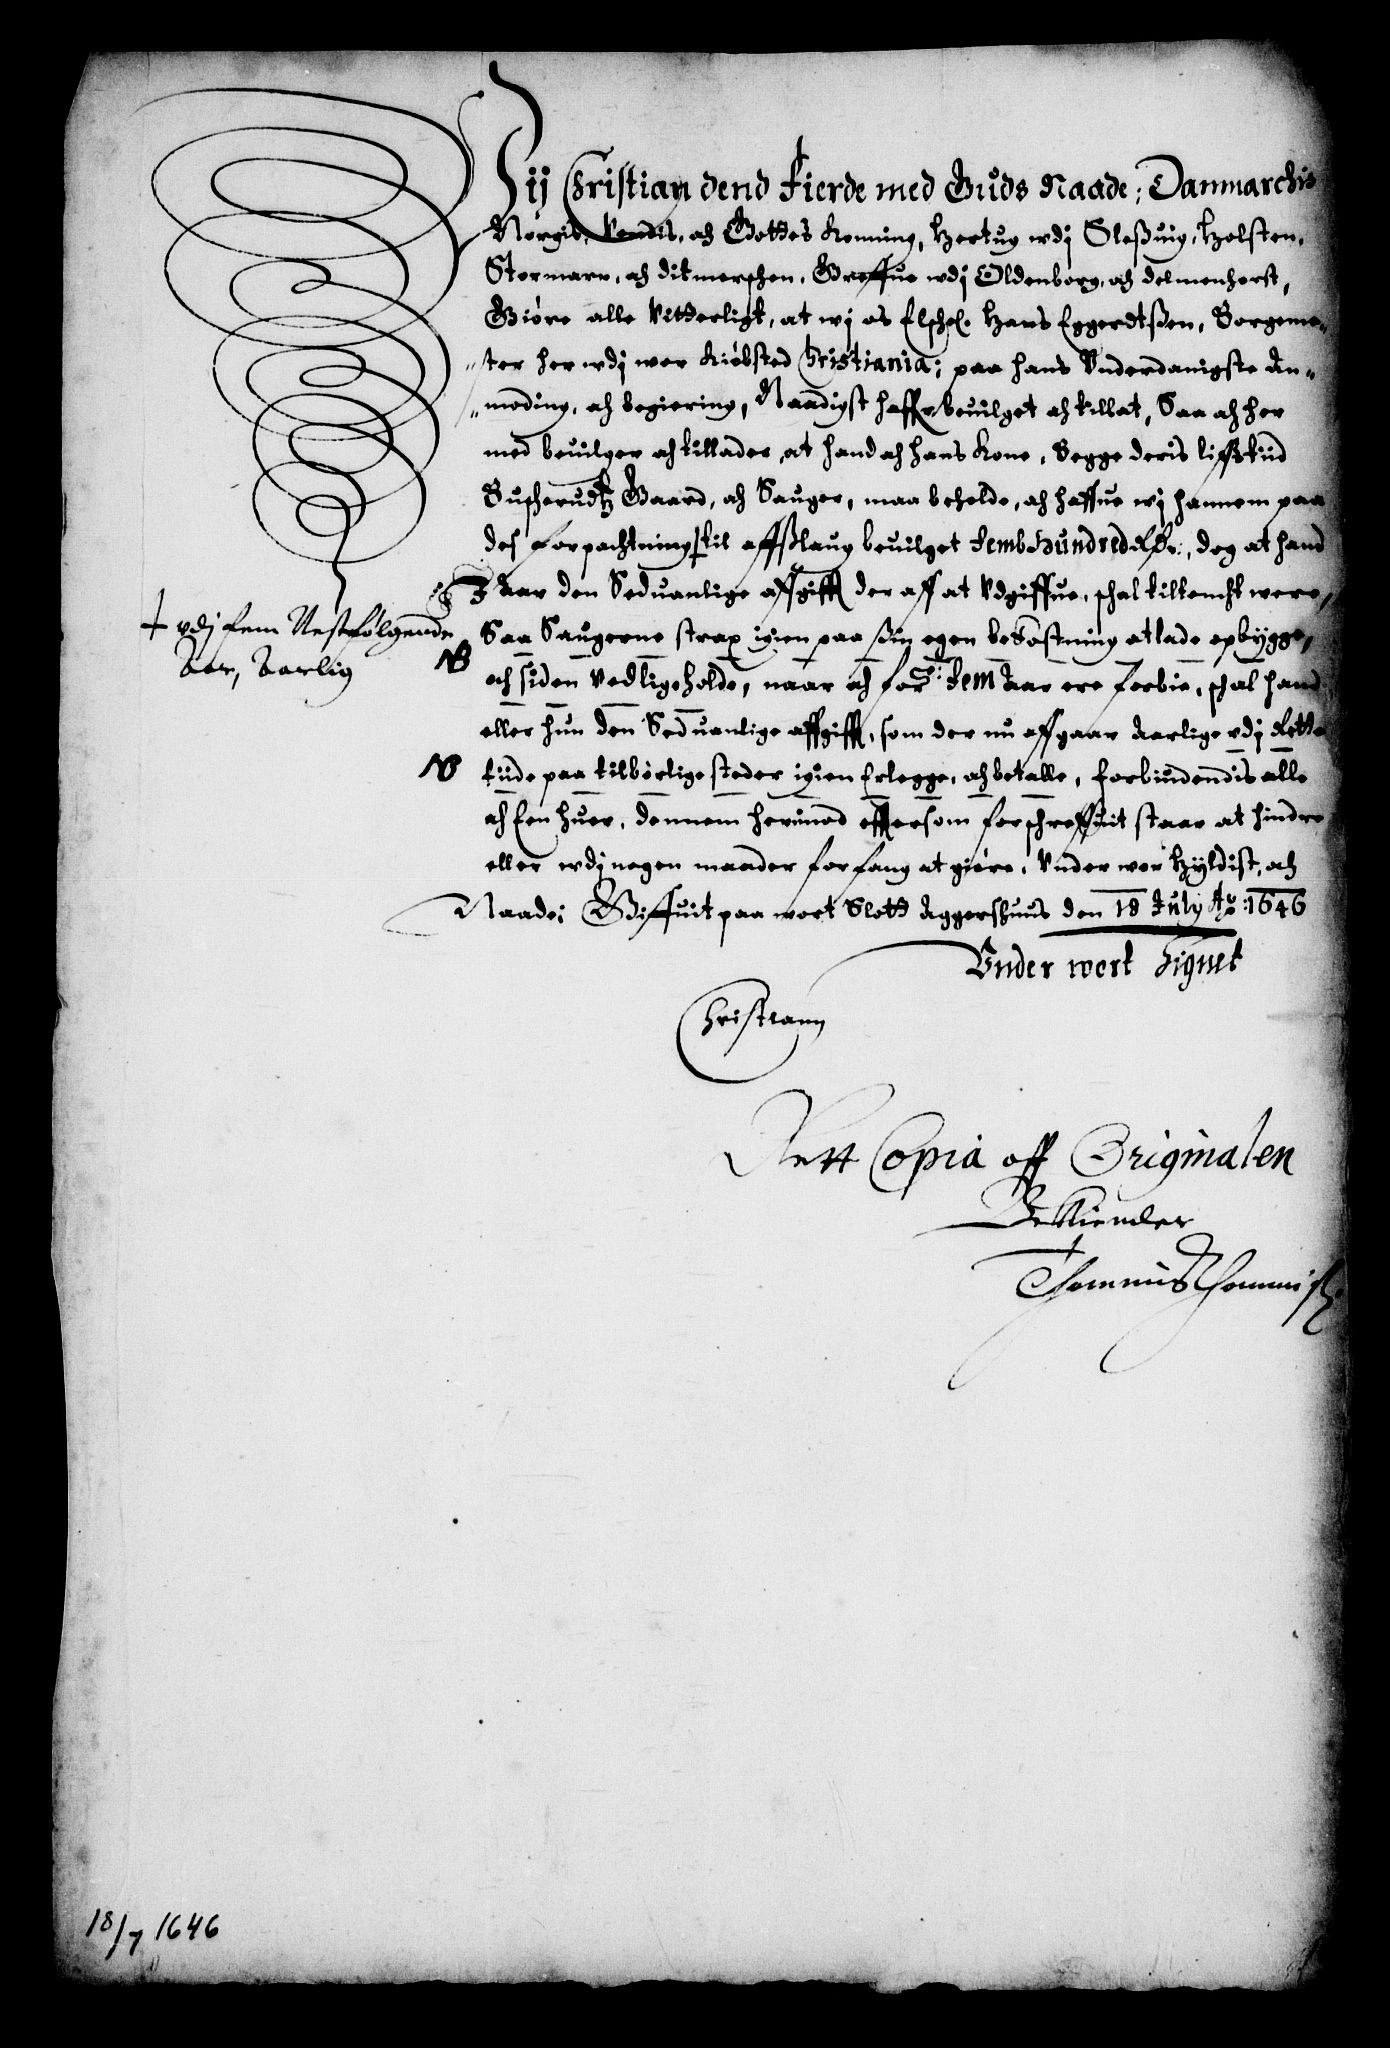 Wij Christian dend Fierde med Guds Naade; Danmarchis
Norgis, Vendis, och Gottes Konning, Hertug wdj Sleßuig, Holsten,
Stormarn, och ditmerschen, Greffue wdj Oldenborg, och delmenhorst,
Giøre alle Vitterligt, at wj os Elschel. Hans Eggerdtßen, Borgeme-
ster her wdj wor Kiøbsted Christiania; paa hans Vnderdanigste An-
moding, och begiering, Naadigst haffr beuilget och tillat, Saa och her
med beuilger och tillader, at hand och hans Kone, Begge deris liffstiid
Buscherudtz Gaard, och Sauger, maa beholde, och haffue wj hannem paa
des forpachtning, til affslaug beuilget Femb Hundred Rdr:, dog at hand
Aar den Seduanlige affgifft der aff at Vdgiffue, schal tiltencht were,
† vdj fem Nestfølgende
Aar, Aarlig
Saa Saugerne strax igien paa ßin egen bekostning at lade opbygge,
NB
och siden Vedligeholde, naar och for: Fem Aar ere forbie, schal hand
eller hun den Seduanlige affgifft, som der nu affgaar Aarlige vdj Rette
NB
tiide paa tilbørlige steder igien Erlegge, och betalle, forbiudendis alle
och Een huer, dennem herimod efftersom forschreffuit staar at hindre
eller wdj nogen maader forfang at giøre, Vnder wor Hyldist, och
Naade; Giffuit paa wort Slott Aggershuus den 18 July Ao: 1646
Vnder wort Signet
Christiann
Rett Copia aff Originalen
Bekiender
18/7 1646